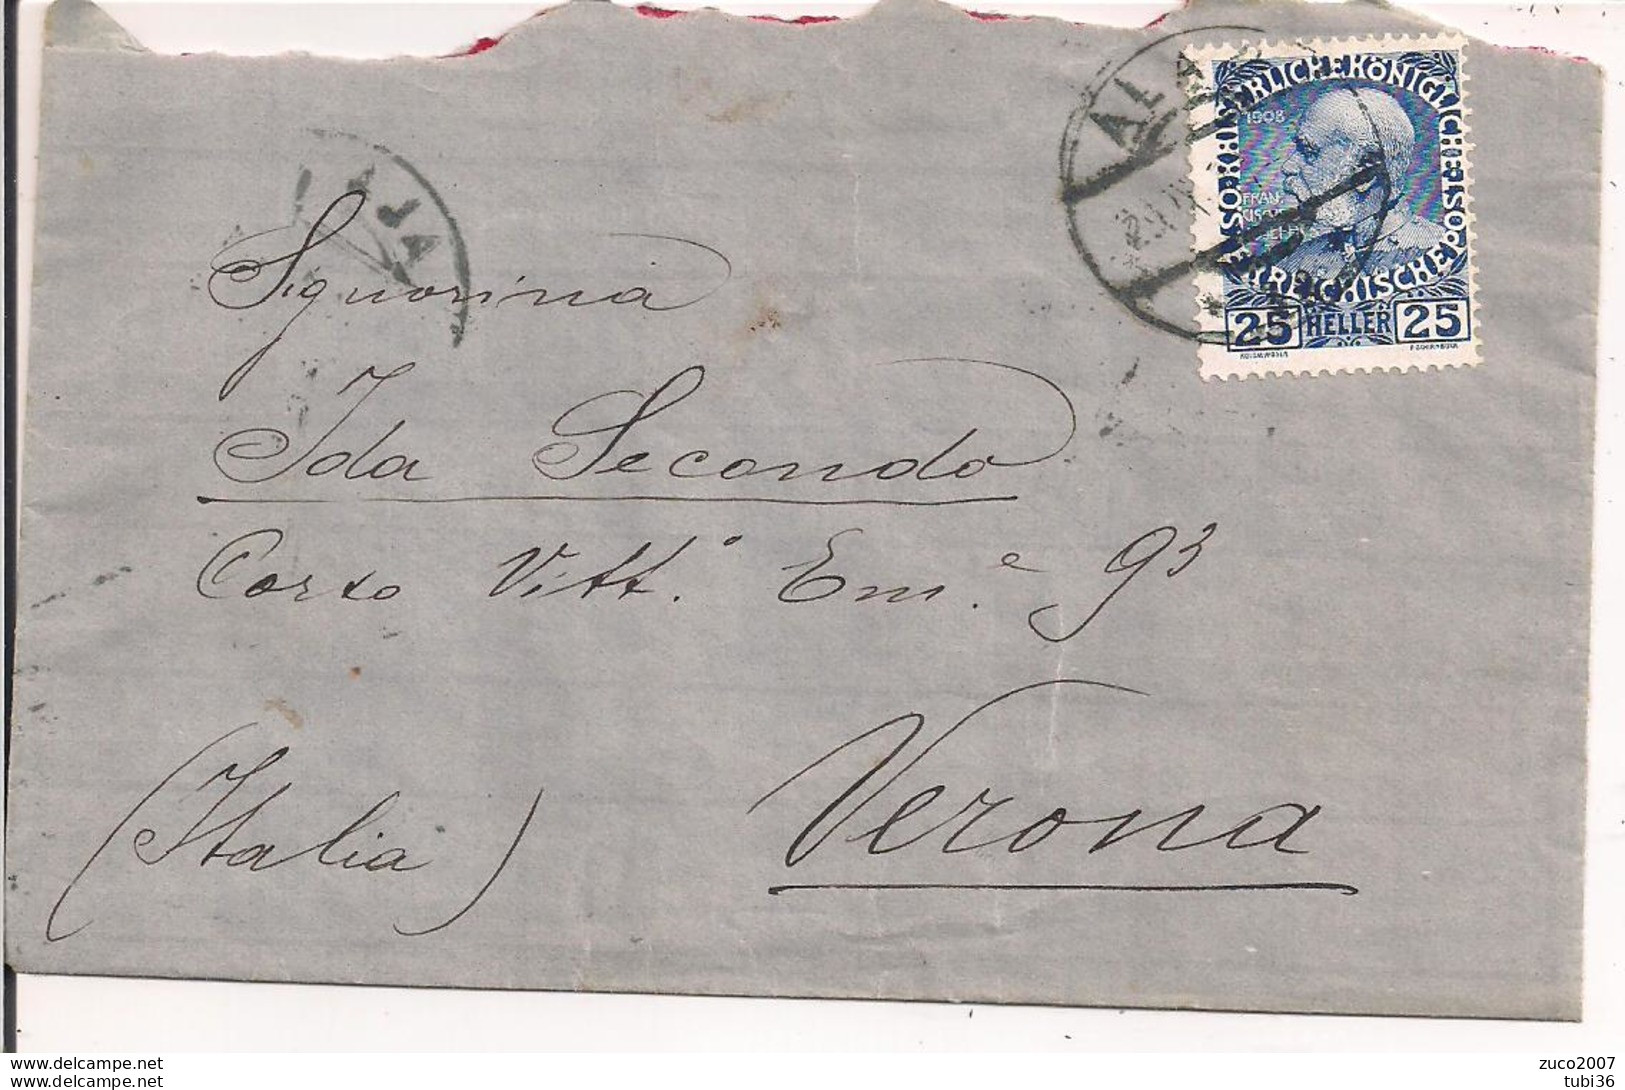 ALA
ALA
KAISERLICHEKÖNIGLICHE
ÖSTERREICHISCHE POST
1908
FRAN
25 HELLER 25
Signorina
Ida Secondo
Corso Vitt.º Em.e 93
Verona
(Italia)
www.delcampe.net
www.delcampe.net
zuco2007
tubi36